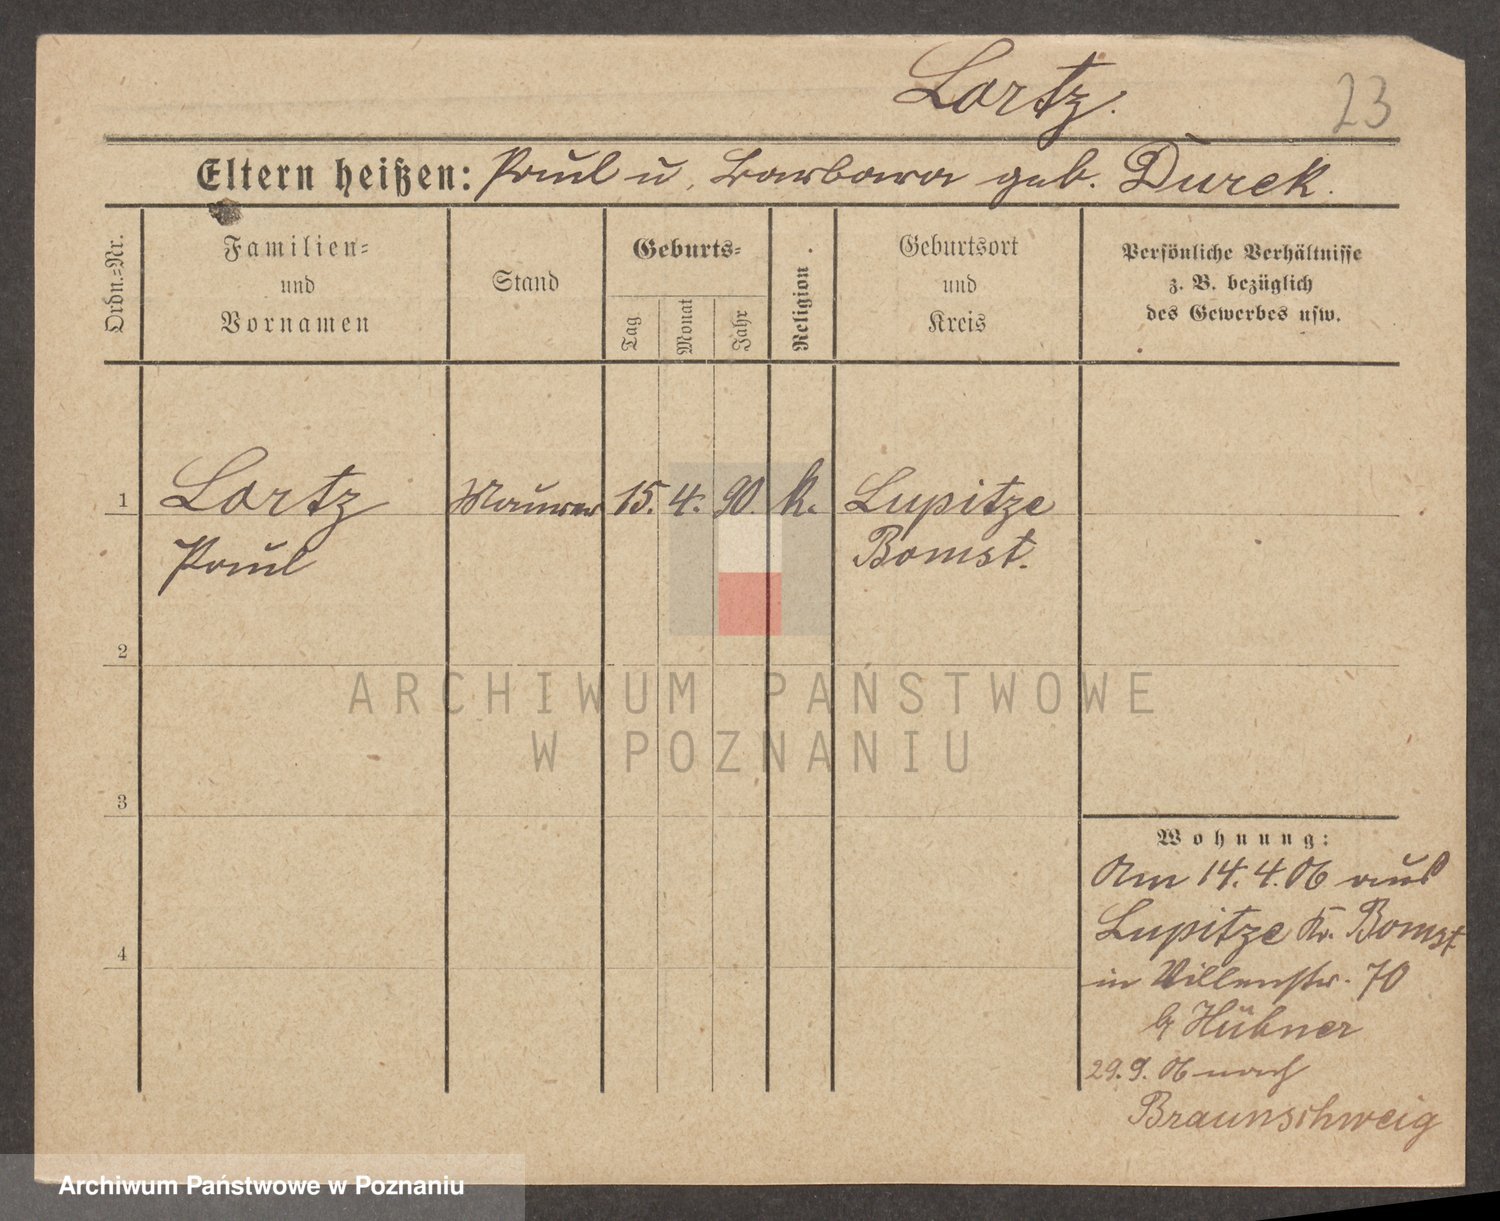 Lortz.
23
Eltern heißen: Paul u. Barbara geb. Durek.
Ordn.=Nr.
Familien=
und
Vornamen
Stand
Geburts=
Tag
Monat
Jahr
Religion.
Geburtsort
und
Kreis
Persönliche Verhältnisse
z. B. bezüglich
des Gewerbes usw.
1 Lortz Maurer 15. 4. 90. k. Lupitze
Paul Bomst.
2
3
4
Wohnung:
Am 14.4.06 aus
Lupitze Kr. Bomst
in Villenstr. 70
b Hübner
29.9.06 nach
Braunschweig
ARCHIWUM PAŃSTWOWE
W POZNANIU
Archiwum Państwowe w Poznaniu